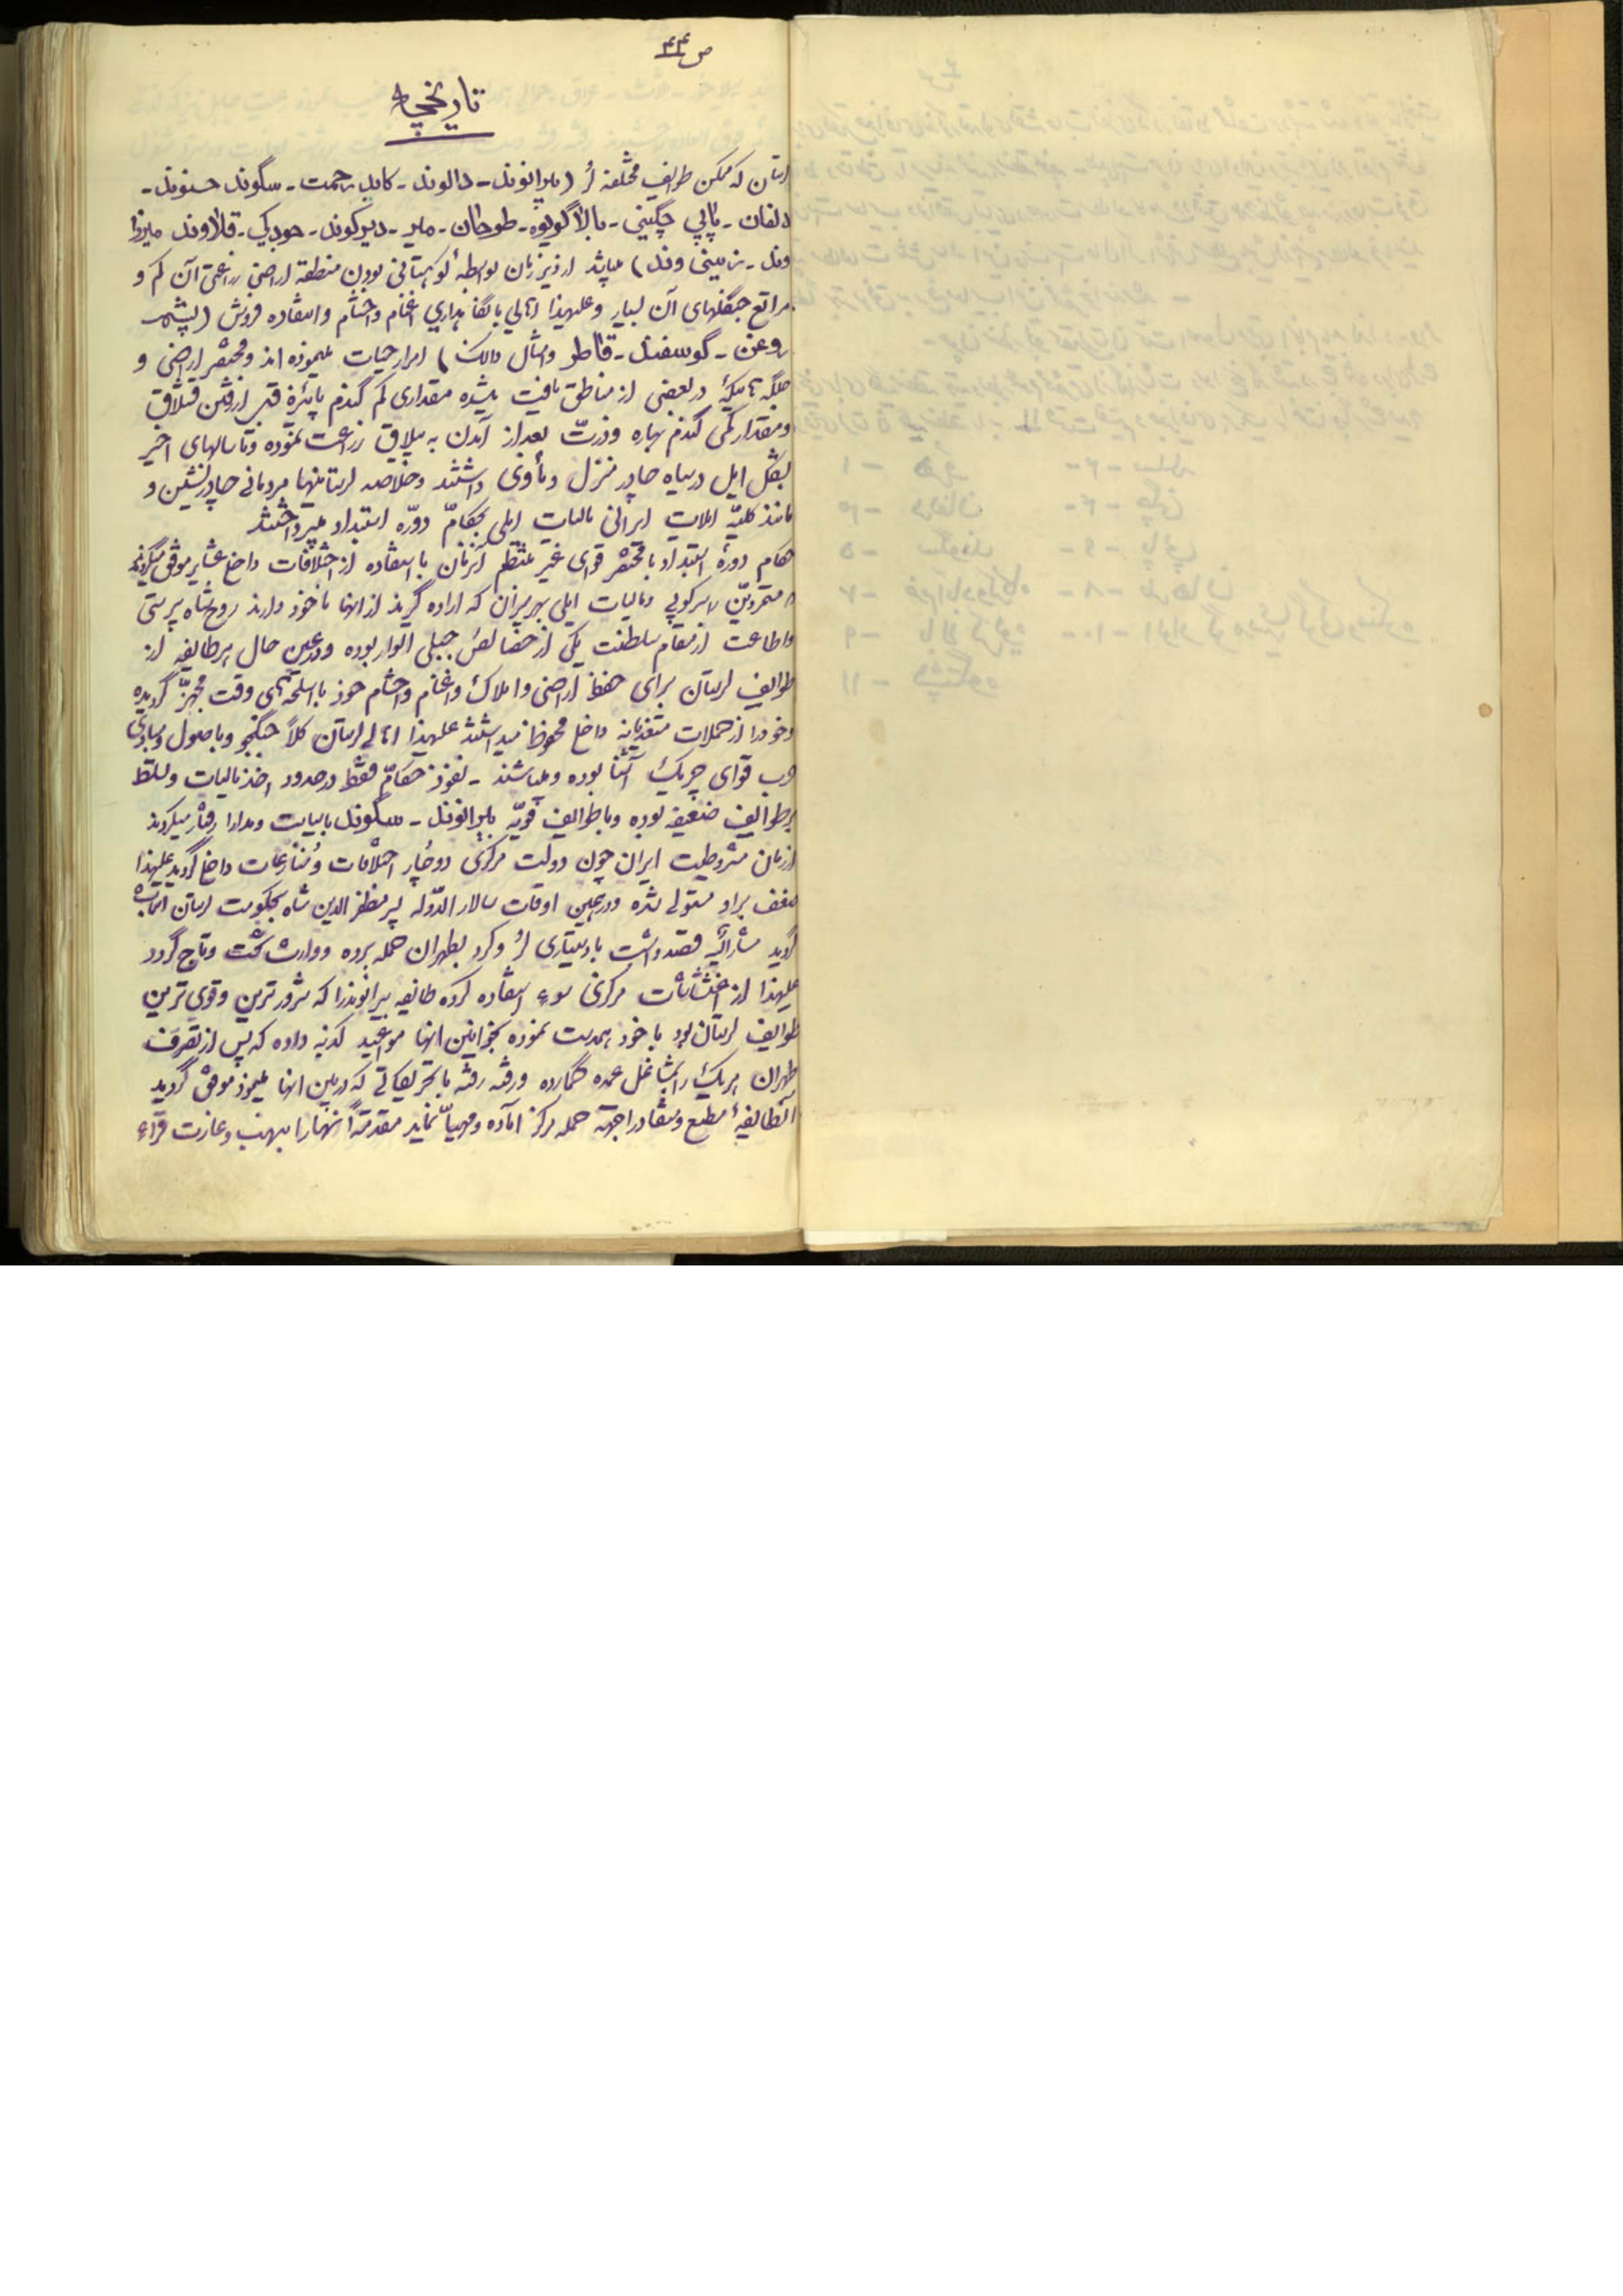 ص ۴۴
تاریخچه
لرستان که مسکن طوایف مختلفه لُر (بیرانوند - دالوند - کاید رحمت - سگوند حسنوند -
دلفان - پاپی چگینی - بالاگریوه - طرحان - میر - دیرکوند - جودکی - قلاوند میرزا
وند - زینی وند) میباشد از دیر زمان بواسطهٔ کوهستانی بودن منطقه اراضی زراعتی آن کم و
مراتع جنگلهای آن بسیار و علیهذا اهالی با نگاهداری اغنام و احشام و استفاده فروش (پشم
روغن - گوسفند - قاطر و امثال ذالک) امرار حیات مینموده اند و مختصر اراضی و
جلگه هائیکه در بعضی از مناطق یافت میشده مقداری کم گندم پائیزه قبل از رفتن قشلاق
و مقدار کمی گندم بهاره و ذرت بعد از آمدن به ییلاق زراعت نموده و تا سالهای اخیر
بشکل ایل در سیاه چادر منزل و مأوی داشتند و خلاصه لرستانیها مردمانی چادرنشین و
مانند کلیّه ایلات ایرانی مالیات ایلی بحکامّ دوره استبداد میپرداختند
حکام دورهٔ استبداد با مختصر قوای غیر منتظم آنزمان با استفاده از اختلافات داخل عشایر موفق میگردیدند
متمردین را سرکوبی و مالیات ایلی بهر میزان که اراده گیرند از انها ماخوذ دارند روح شاه پرستی
و اطاعت از مقام سلطنت یکی از خصائص جبلی الوار بوده و در عین حال هر طایفه از
طوایف لرستان برای حفظ اراضی و املاک و اغنام و احشام خود با اسلحه‌های وقت مجهزّ گردیده
و خود را از حملات متعدیانه داخل محفوظ میداشتند علیهذا اهالی لرستان کلاً جنگجو و باصول و مبادی
حرب قوای چریک آشنا بوده و میباشند - نفوذ حکامّ فقط در حدود اخذ مالیات و تسلط
بر طوایف ضعیفه بوده و با طوایف قویّه بیرانوند - سگوند با سیاست و مدارا رفتار میکردند
از زمان مشروطیت ایران چون دولت مرکزی دوچار اختلافات و منازعات داخل گردید علیهذا
ضعف براو مستولی شده و در همین اوقات سالار الدّوله پسر مظفر الدین شاه بحکومت لرستان انتخاب
گردید مشارالیه قصد داشت با دستیاری لُر و کرد بطهران حمله برده و وارث تخت و تاج گردد
علیهذا از اغتشاشات مرکزی سوء استفاده کرده طایفه بیرانوند را که شرورترین و قوی ترین
طوایف لرستان بود با خود همدست نموده بخوانین انها مواعید کذبه داده که پس از تصرف
طهران هر یک را بمشاغل عمده گمارده و رفته رفته با تحریکاتی که در بین انها مینمود موفق گردید
آنطایفهٔ مطیع و منقاد را جهته حمله مرکز اماده و مهیّا نماید مقدمتاً آنها را بنهب و غارت قراء